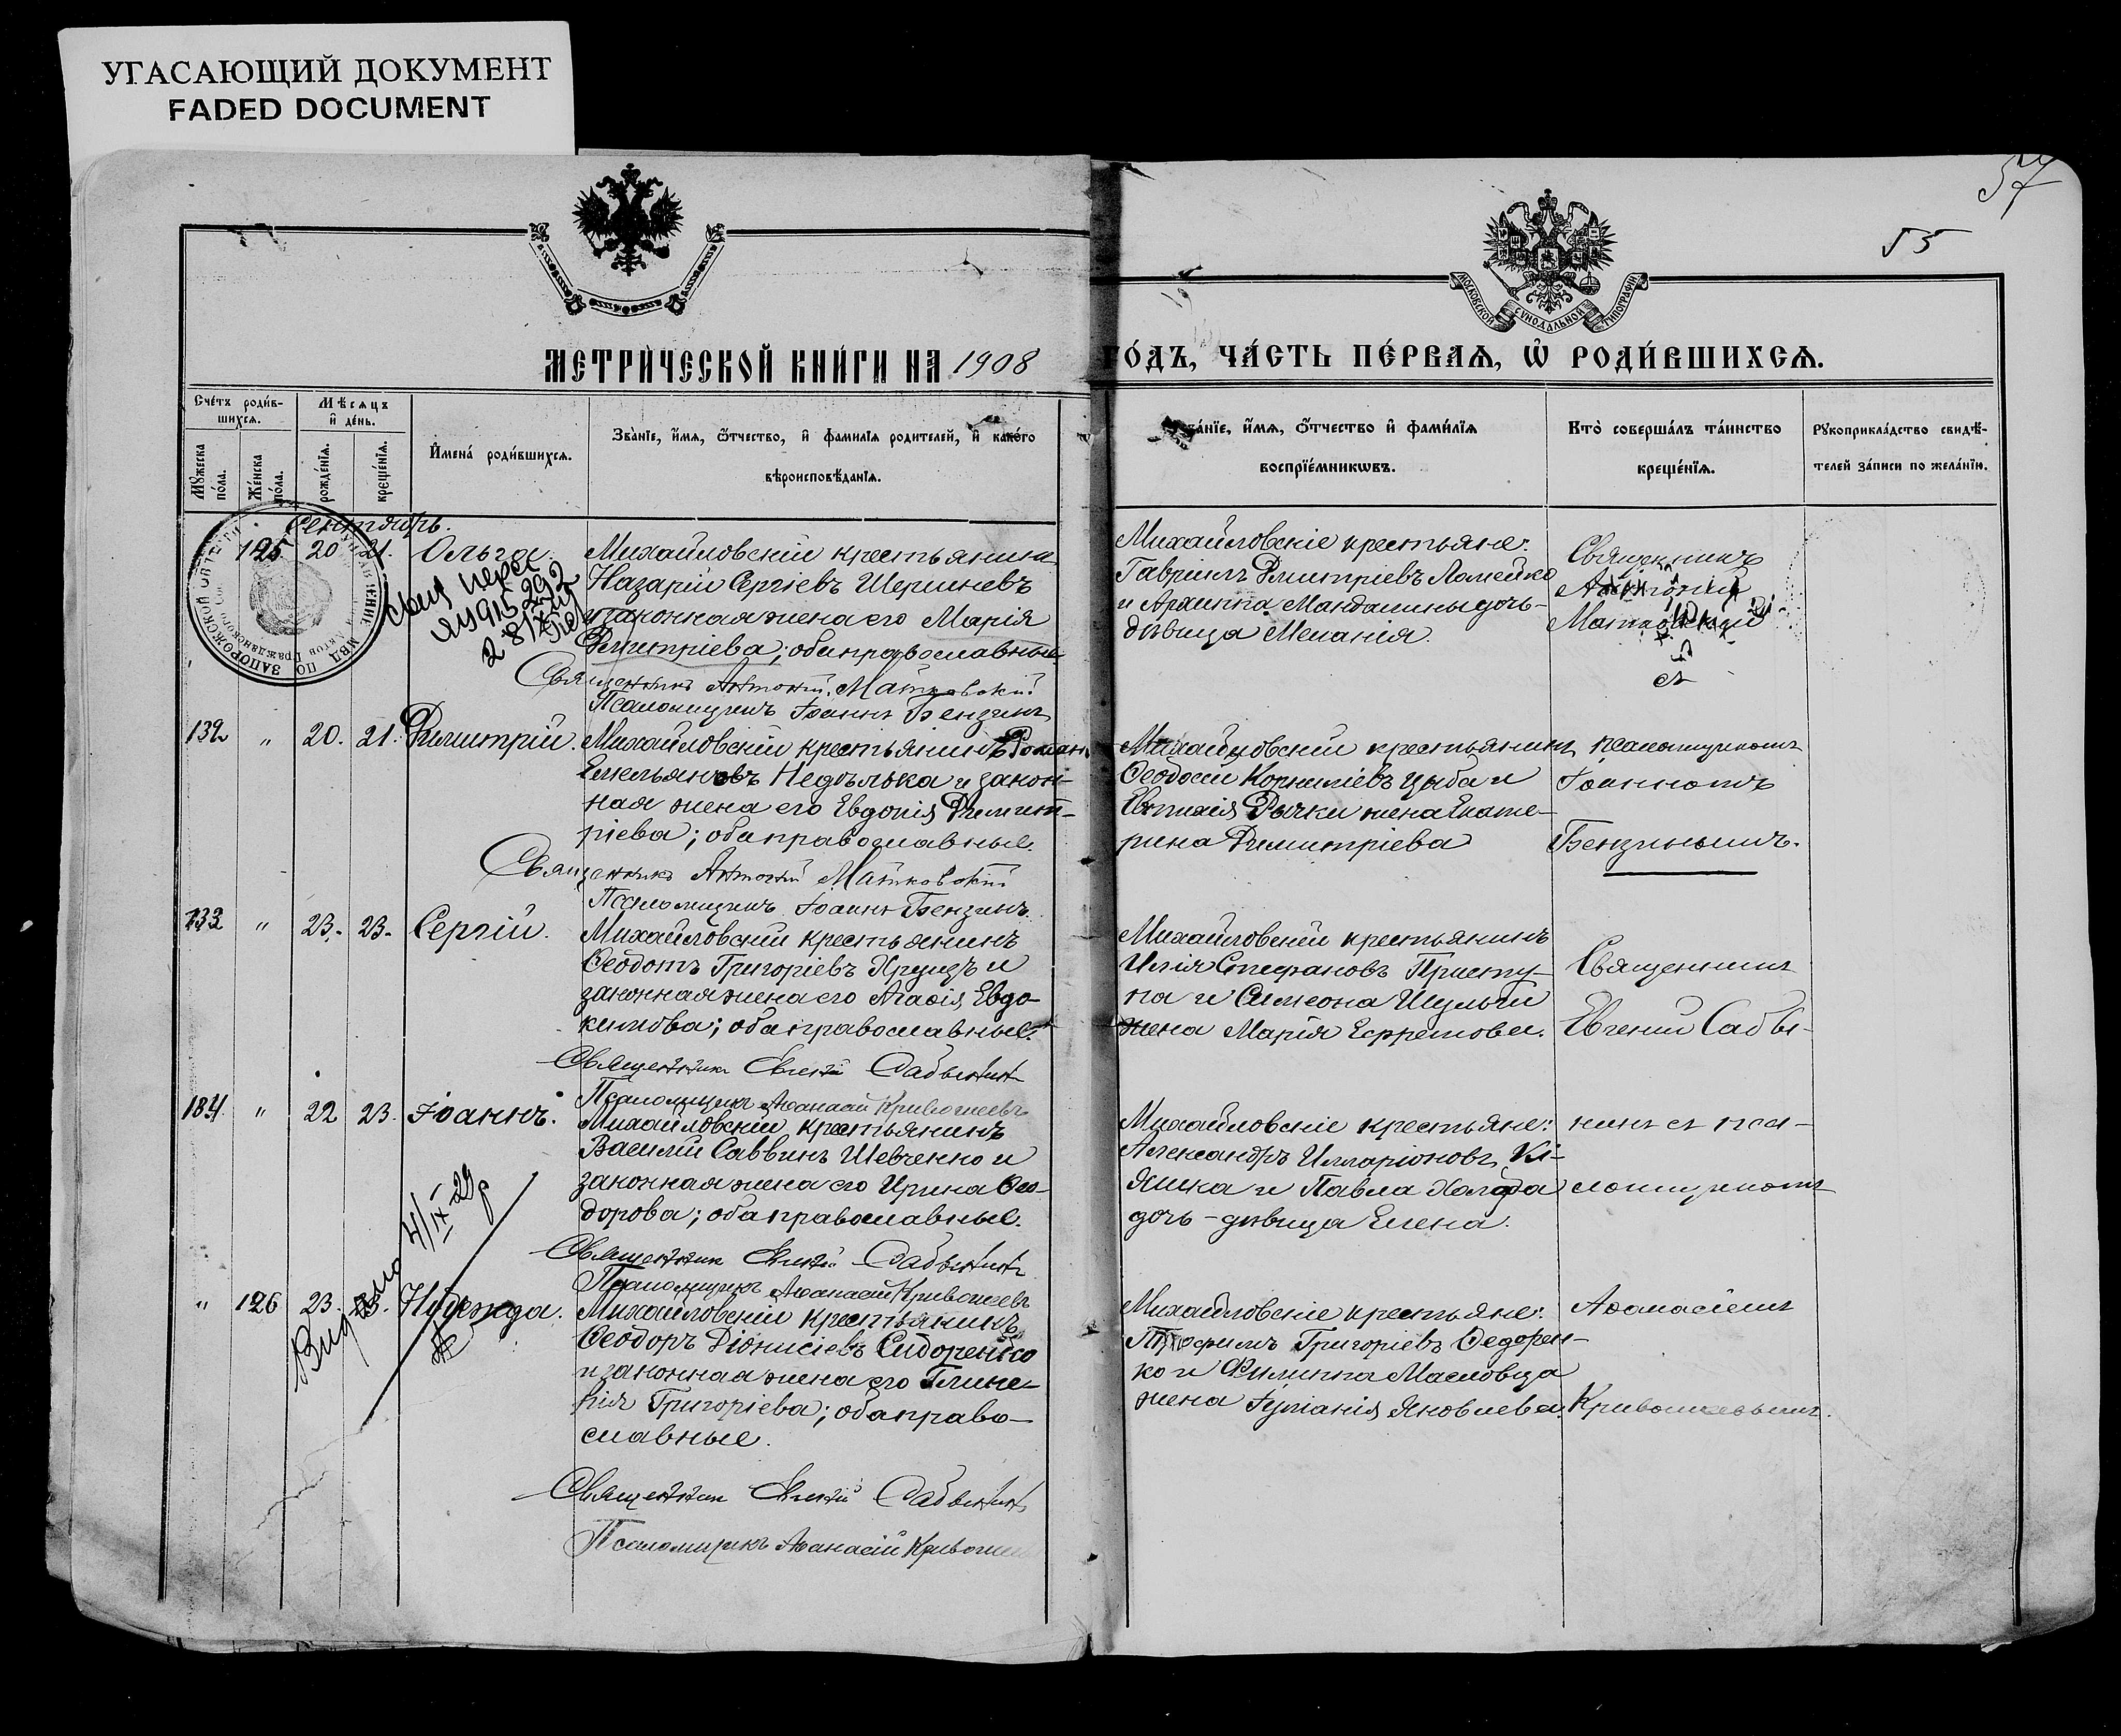 УГАСАЮЩИЙ ДОКУМЕНТ
FADED DOCUMENT
57
55
МОСКОВСКОЙ СѴНОДАЛЬНОЙ ТИПОГРАФІИ
МЕТРИ́ЧЕСКОЙ КНИ́ГИ НА 1908
ГО́ДЪ, ЧА́СТЬ ПЕ́РВАѦ, Ѡ҆ РОДИ́ВШИХСѦ.
Сче́тъ роди́в-
шихсѧ.
Мꙋ́жеска
по́ла.
Же́нска
по́ла.
Мѣ́сѧцъ
и҆ де́нь.
рожде́нїѧ.
креще́нїѧ.
И҆мена̀ роди́вшихсѧ.
Зва́нїе, и҆́мѧ, ѻ҆́тчество, и҆ фами́лїѧ роди́телей, и҆ како́гѡ
вѣроисповѣ́данїѧ.
Зва́нїе, и҆́мѧ, ѻ҆́тчество и҆ фами́лїѧ
воспрїе́мникѡвъ.
Кто̀ соверша́лъ та́инство
креще́нїѧ.
Рꙋкоприкла́дство свидѣ́-
телей за́писи по жела́нїю.
Сентябрь.
125 20 21. Ольга.
Михайловскій крестьянинъ
Назарій Сергіевъ Шершневъ
и законная жена его Марія
Димитріева; оба православные
Священникъ Антоній Матковскій
Псаломщикъ Іоаннъ Бензинъ
Михайловскіе крестьяне:
Гавріилъ Димитріевъ Ломейко
и Архиппа Мандалины дочь-
дѣвица Меланія.
Священникъ
Антоній
Матковскій
съ
28/
132 " 20. 21. Димитрій.
Михайловскій крестьянинъ Романъ
Емельяновъ Недѣлька и закон-
ная жена его Евдокія Димит-
ріева; оба православные.
Священникъ Антоній Матковскій
Псаломщикъ Іоаннъ Бензинъ
Михайловскій крестьянинъ
Ѳеодосій Корниліевъ Цыба и
Евтихія Рычки жена Екате-
рина Димитріева
псаломщикомъ
Іоанномъ
Бензинымъ.
133 " 23. 23. Сергій.
Михайловскій крестьянинъ
Ѳеодотъ Григоріевъ Хрущъ и
законная жена его Агаѳія Евдо-
кимова; оба православные.
Священникъ Евгеній Сабынинъ
Псаломщикъ Аѳанасій Кривошеевъ
Михайловскій крестьянинъ
Илія Стефановъ Присту-
па и Симеона Шульги
жена Марія Ефремова.
Священникъ
Евгеній Сабы-
134 " 22 23. Іоаннъ.
Михайловскій крестьянинъ
Василій Саввинъ Шевченко и
законная жена его Ирина Ѳео-
дорова; оба православные.
Священникъ Евгеній Сабынинъ
Псаломщикъ Аѳанасій Кривошеевъ
Михайловскіе крестьяне:
Александръ Илларіоновъ Кі-
яшка и Павла Холода
дочь-дѣвица Елена.
нинъ съ пса-
ломщикомъ
Выдано 4/IX-29 р
" 126 23. 23. Надежда.
Михайловскій крестьянинъ
Ѳеодоръ Діонисіевъ Сидоренко
и законная жена его Глике-
рія Григоріева; оба право-
славные.
Священникъ Евгеній Сабынинъ
Псаломщикъ Аѳанасій Кривошеевъ
Михайловскіе крестьяне:
Трофимъ Григоріевъ Ѳедорен-
ко и Филиппа Масловца
жена Іуліанія Яковлева.
Аѳанасіемъ
Кривошеевымъ.